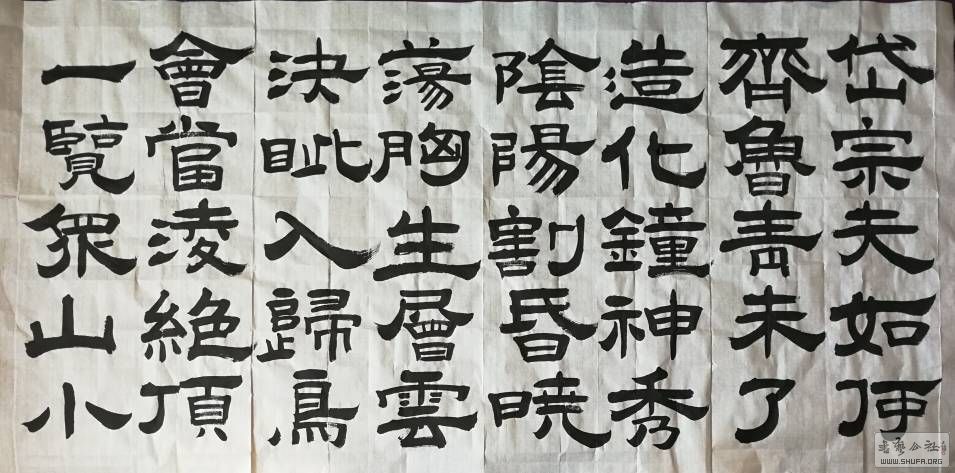 岱宗夫如何
齊魯青未了
造化鐘神秀
陰陽割昏暁
蕩胸生層雲
決眦入歸鳥
會當淩絕頂
一覽眾山小
WWW.SHUFA.ORG